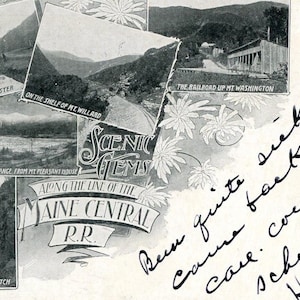 STER
ON THE SHELF OF MT. WILLARD
THE RAILROAD UP MT WASHINGTON
RANGE, FROM MT. PLEASANT HOUSE
SCENIC
GEMS
ALONG THE LINE OF THE
MAINE CENTRAL
R.R.
TCH
Been quite sick
came back
care. cou
scho